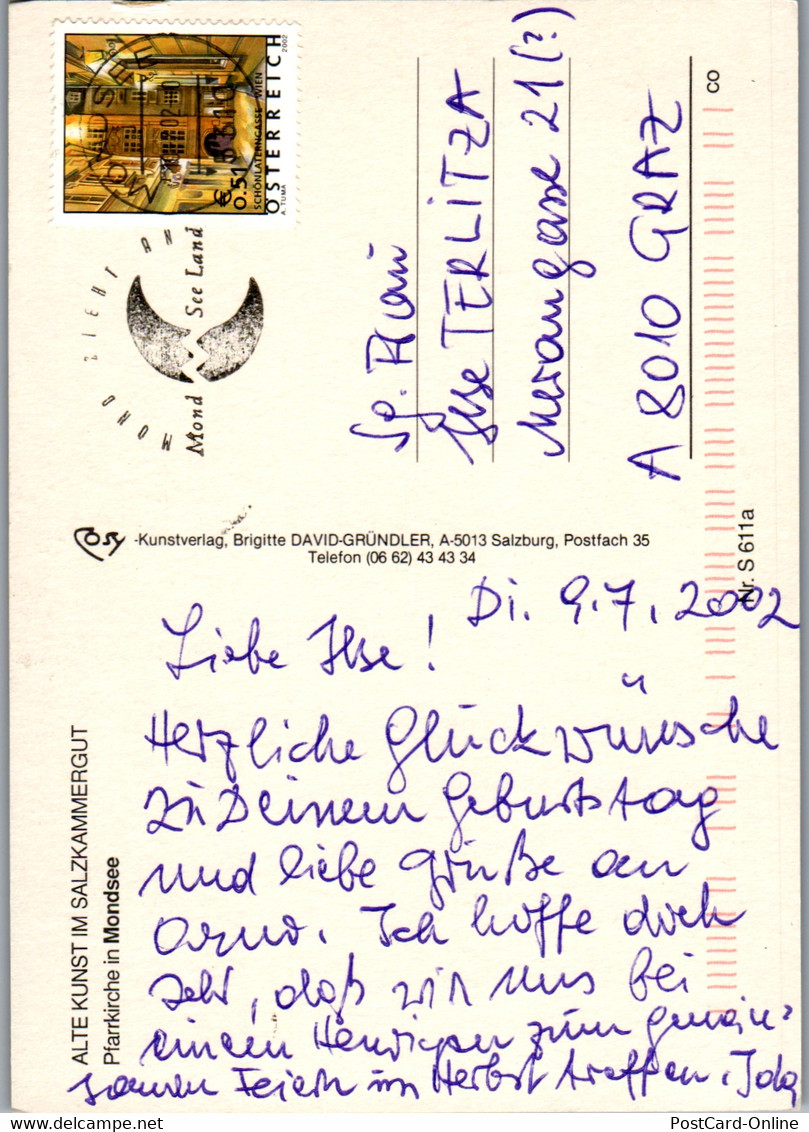 ALTE KUNST IM SALZKAMMERGUT
Pfarrkirche in Mondsee
Di. 9.7.2002
Liebe Ilse!
Herzliche Glückwünsche
zu Deinem Geburtstag
und liebe Grüße an
Arno. Ich hoffe doch
sehr, daß wir uns bei
einem Heurigen zum gemein=
samen Feiern im Herbst treffen. Ida
-Kunstverlag, Brigitte DAVID-GRÜNDLER, A-5013 Salzburg, Postfach 35
Telefon (06 62) 43 43 34
MOND ZIEHT AN
Mond See Land
€ 0.51
SCHÖNLATERNGASSE · WIEN
ÖSTERREICH
A. TUMA
2002
Sg. Frau
Ilse TERLITZA
Merangasse 21(?)
A 8010 GRAZ
CO
Nr. S 611a
PostCard-Online